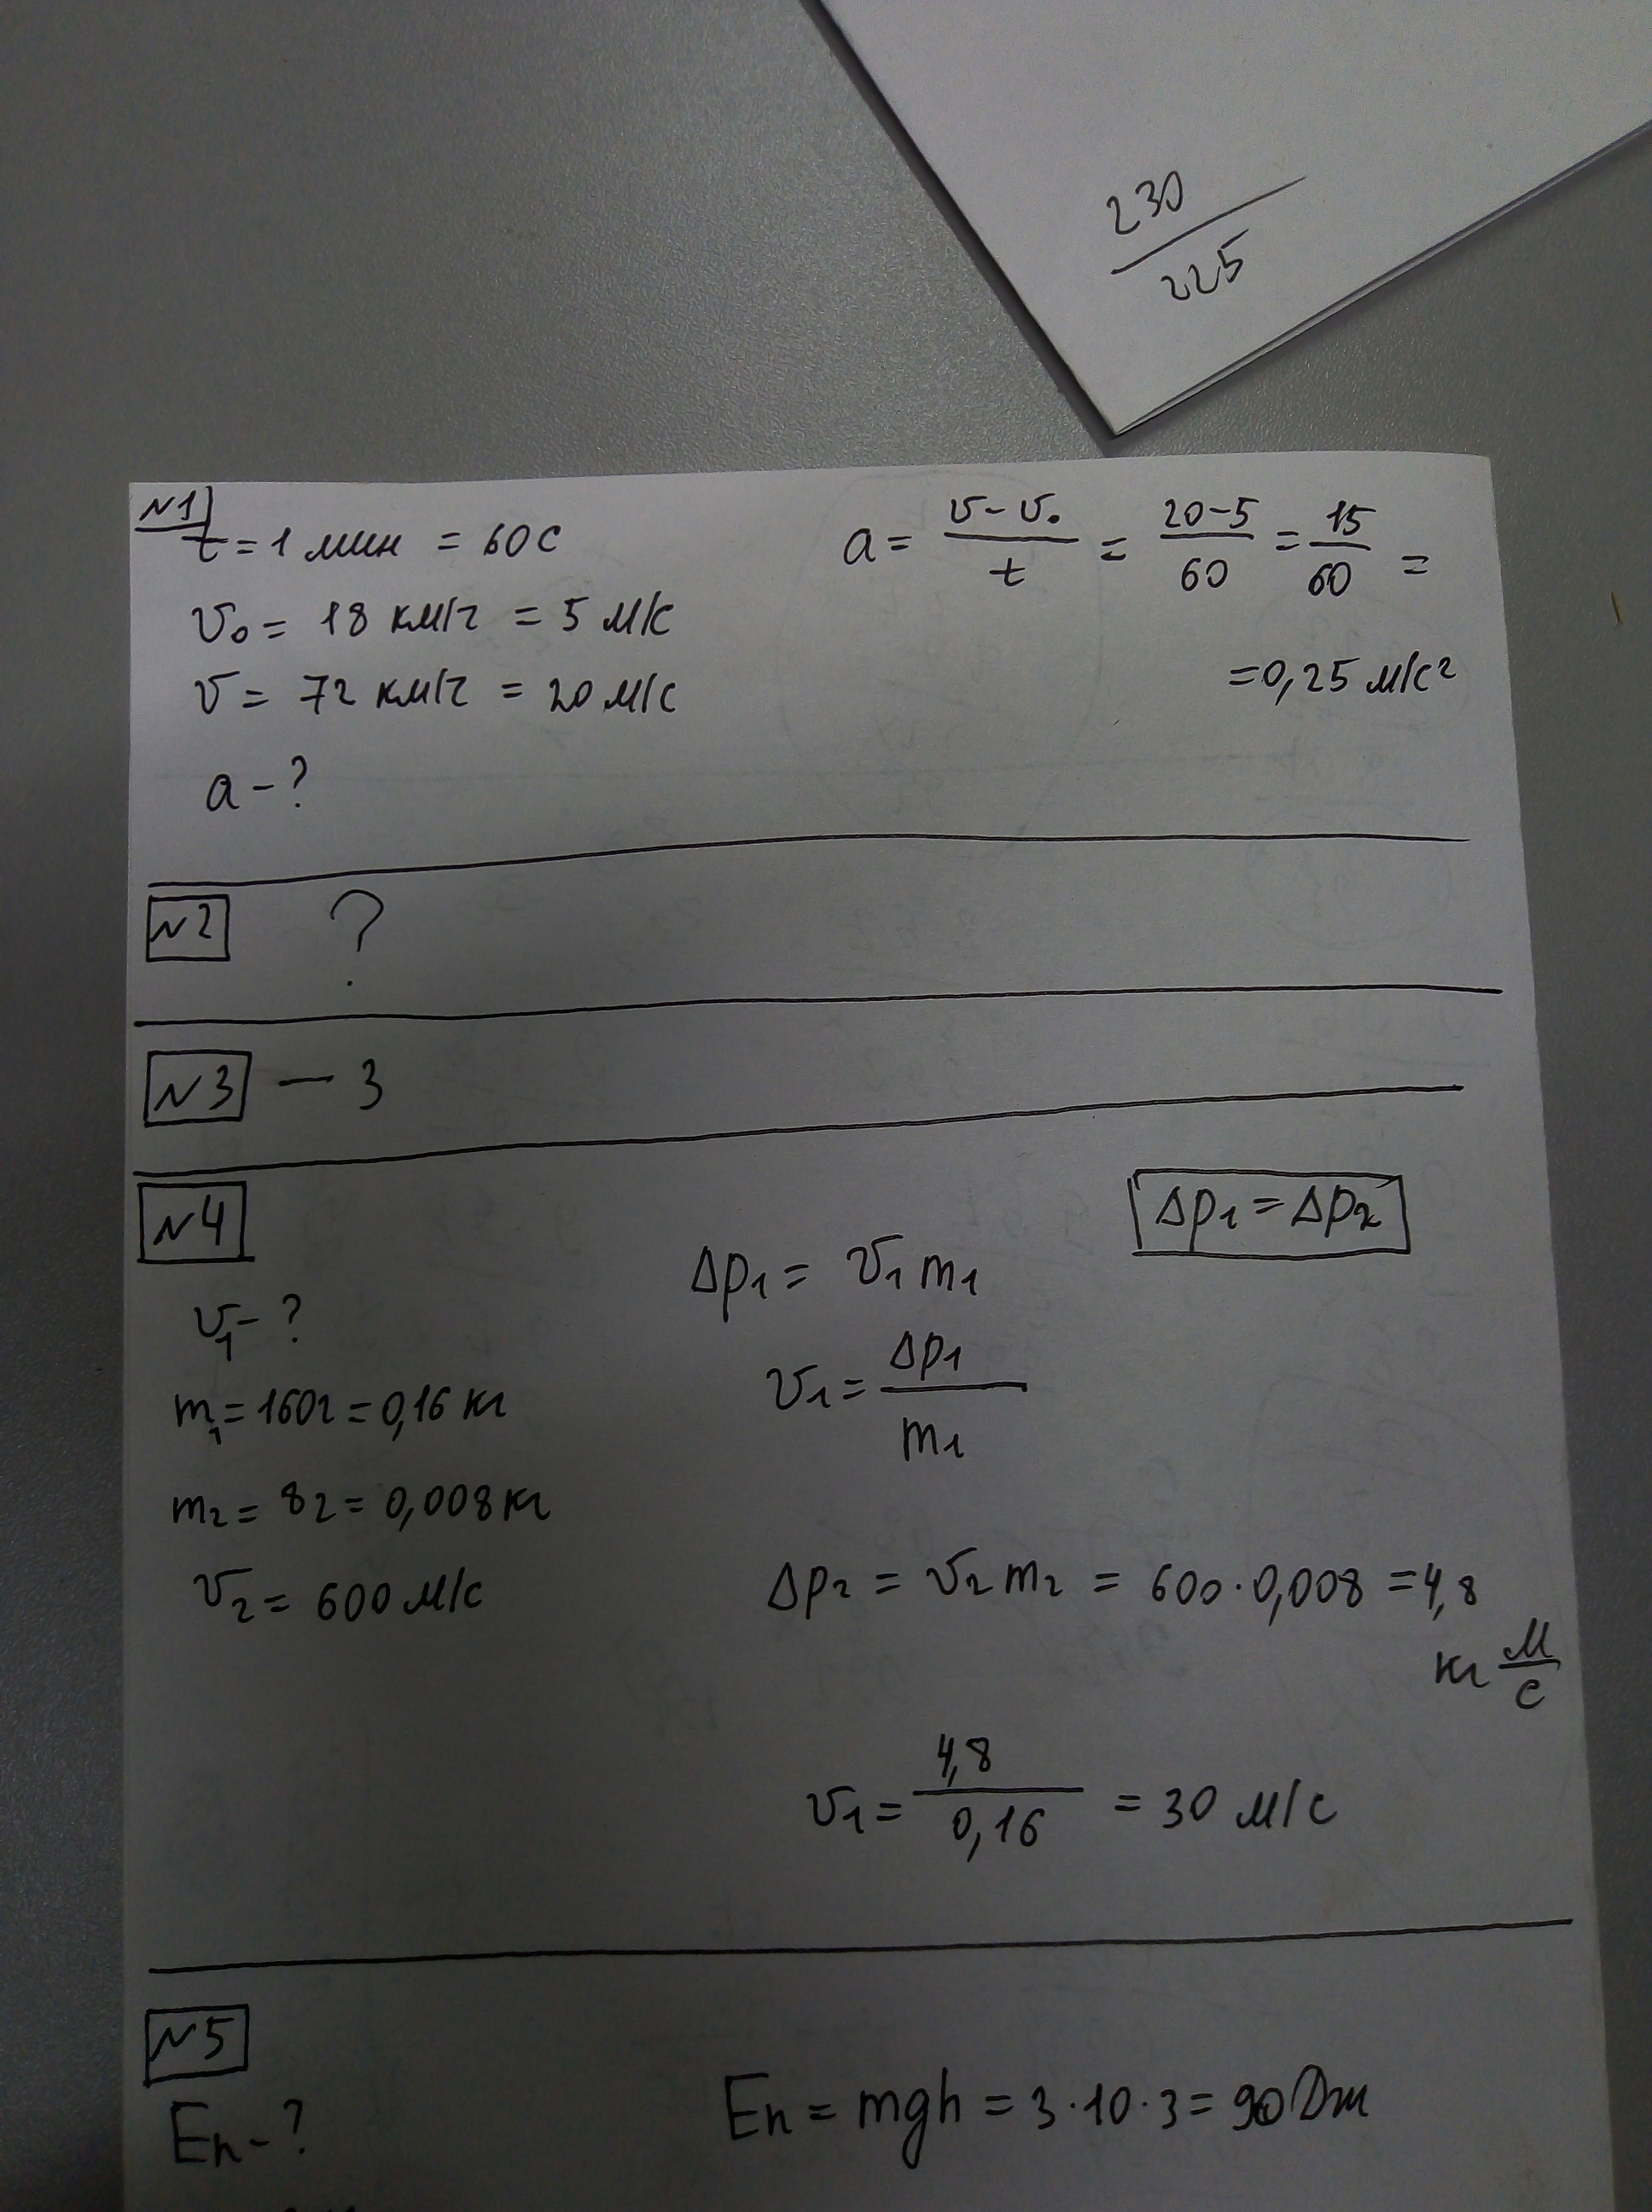 230
225
№1
t = 1 мин = 60 с
v₀ = 18 км/ч = 5 м/с
v = 72 км/ч = 20 м/с
a - ?
a = (v - v₀)/t = (20-5)/60 = 15/60 =
= 0,25 м/с²
№2 ?
№3 — 3
№4
v₁ - ?
m₁ = 160г = 0,16 кг
m₂ = 8г = 0,008 кг
v₂ = 600 м/с
Δp₁ = Δp₂
Δp₁ = v₁ m₁
v₁ = Δp₁/m₁
Δp₂ = v₂ m₂ = 600 · 0,008 = 4,8
кг м/с
v₁ = 4,8/0,16 = 30 м/с
№5
Eп - ?
Eп = mgh = 3 · 10 · 3 = 90 Дж